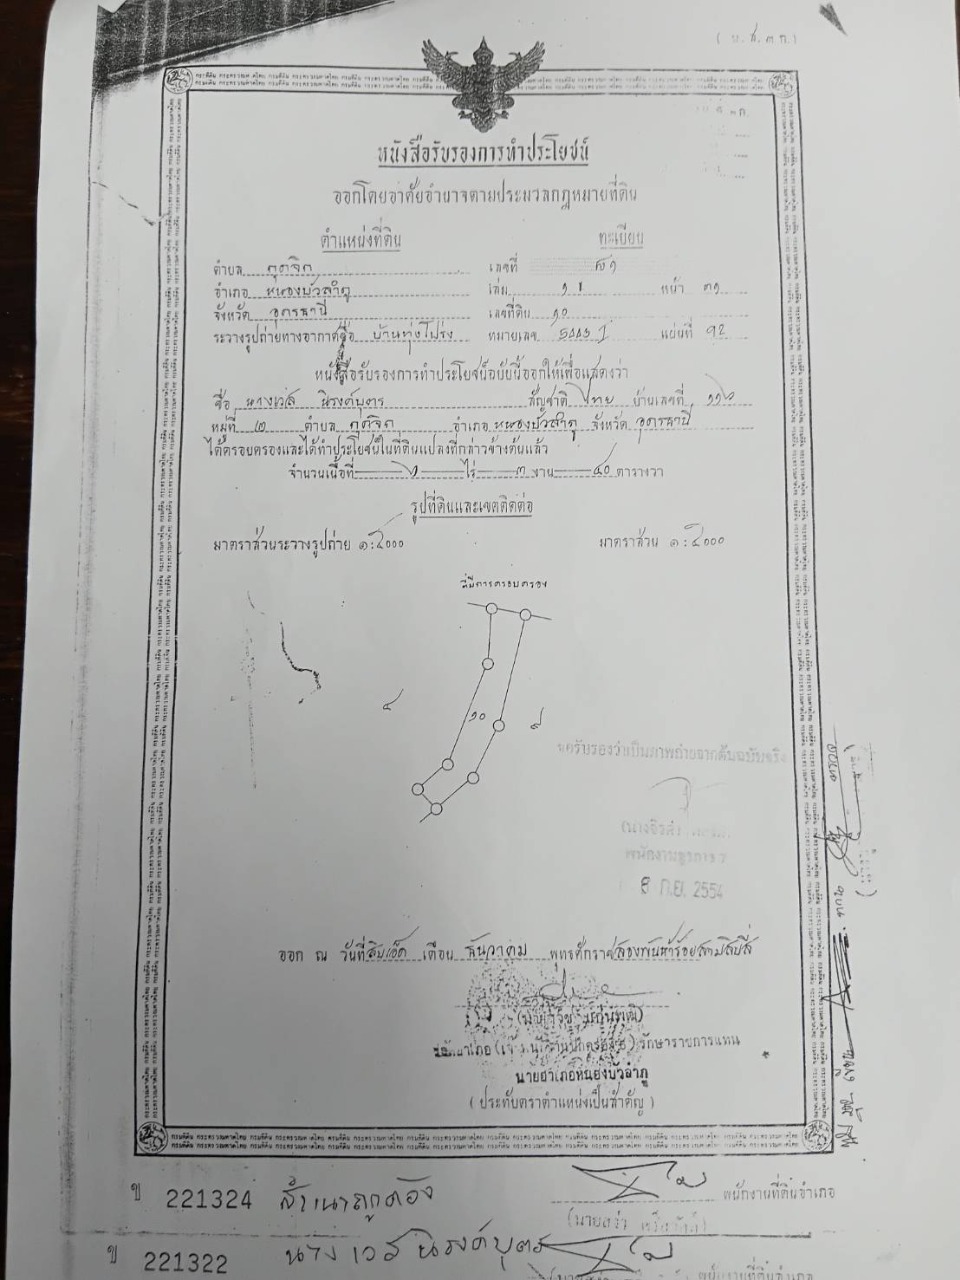 (น.ส.๓ก.)
หนังสือรับรองการทำประโยชน์
ออกโดยอาศัยอำนาจตามประมวลกฎหมายที่ดิน
ตำแหน่งที่ดิน ทะเบียน
ตำบล กุดจิก เลขที่
อำเภอ หนองบัวลำภู เล่ม หน้า ๓๑
จังหวัด อุดรธานี เลขที่ดิน ๑๐
ระวางรูปถ่ายทางอากาศชื่อ บ้านทุ่งโปร่ง หมายเลข แผ่นที่ ๑๒
หนังสือรับรองการทำประโยชน์ฉบับนี้ออกให้เพื่อแสดงว่า
ชื่อ นางเวส นิรงค์บุตร สัญชาติ ไทย บ้านเลขที่
หมู่ที่ ๒ ตำบล กุดจิก อำเภอ หนองบัวลำภู จังหวัด อุดรธานี
ได้ครอบครองและได้ทำประโยชน์ในที่ดินแปลงที่กล่าวข้างต้นแล้ว
จำนวนเนื้อที่ ไร่ ๓ งาน ๔๐ ตารางวา
รูปที่ดินและเขตติดต่อ
มาตราส่วนระวางรูปถ่าย ๑:๕๐๐๐ มาตราส่วน ๑:๕๐๐๐
ที่มีการครอบครอง
๑๐
ขอรับรองว่าเป็นภาพถ่ายจากต้นฉบับจริง
พนักงานธุรการ
8 ก.ย. 2554
ออก ณ วันที่ สิบเอ็ด เดือน ธันวาคม พุทธศักราช สองพันห้าร้อยสามสิบสี่
รักษาราชการแทน
นายอำเภอหนองบัวลำภู
(ประทับตราตำแหน่งเป็นสำคัญ)
ข 221324 สำเนาถูกต้อง พนักงานที่ดินอำเภอ
ข 221322 นางเวส นิรงค์บุตร